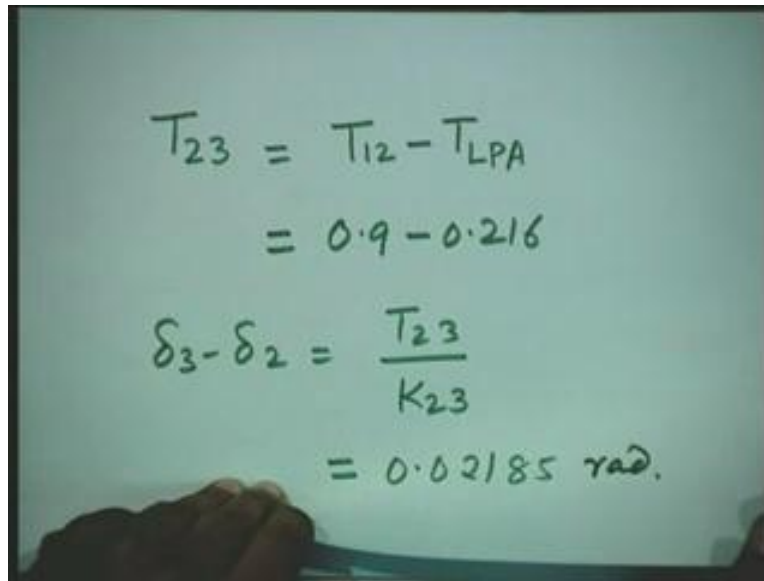 T23 = T12 - TLPA
= 0.9 - 0.216
δ3 - δ2 = T23 / K23
= 0.02185 rad.